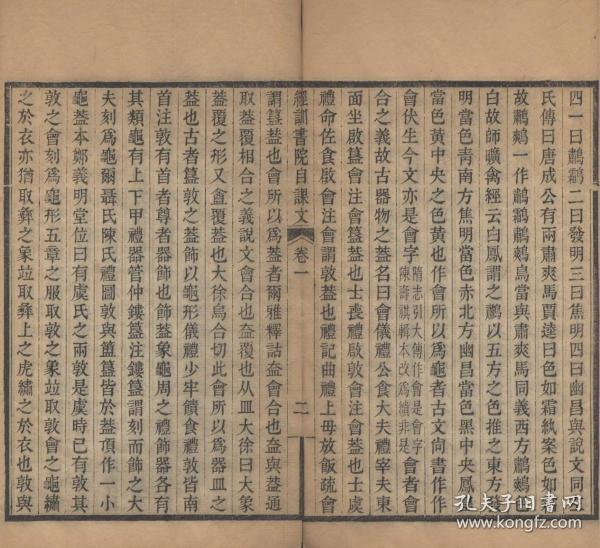 四一曰鷫鷞二曰發明三曰焦明四曰幽昌與說文同
氏傳曰唐成公有兩肅爽馬賈逵曰色如霜紈案色如
故鷫鷞一作鷫鸘鷫鷞鳥當與肅爽馬同義西方鷫鷞
白故師曠禽經云白鳳謂之鷫以五方之色推之東方發
明當色青南方焦明當色赤北方幽昌當色黑中央鳳
當色黃中央之色黃也作會所以爲龜者古文尚書作作
會伏生今文亦是會字隋志引大傳作會是會字陳壽祺輯本改爲繢非是會者會
合之義故古器物之蓋名曰會儀禮公食大夫禮宰夫東
面坐啟簋會注會簋蓋也士喪禮啟敦會注會蓋也士虞
禮命佐食啟會注會謂敦蓋也禮記曲禮上毋放飯疏會
經訓書院自課文
卷一
二
謂簋蓋也會所以爲蓋者爾雅釋詁盇會合也盇與蓋通
取蓋覆相合之義說文會合也盇覆也从皿大徐曰大象
蓋覆之形又盇覆蓋也大徐烏合切此會所以爲器皿之
蓋也古者簋敦之蓋飾以龜形儀禮少牢饋食禮敦皆南
首注敦有首者尊者器飾也飾蓋象龜周之禮飾器各有
其類龜有上下甲禮器管仲鏤簋注鏤簋謂刻而飾之大
夫刻爲龜爾聶氏陳氏禮圖敦與簠簋皆於蓋頂作一小
龜蓋本鄭義明堂位曰有虞氏之兩敦是虞時已有敦其
敦之會刻爲龜形五章之服取敦之象竝取敦會之龜繡
之於衣亦猶取彝之象竝取彝上之虎繡之於衣也敦與
孔夫子旧书网
www.kongfz.com